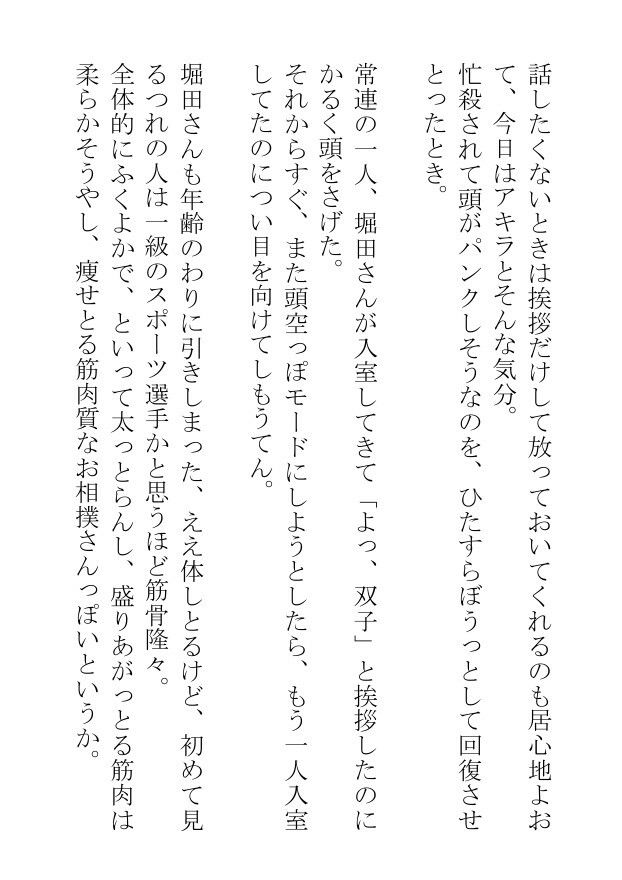 話したくないときは挨拶だけして放っておいてくれるのも居心地よお
て、今日はアキラとそんな気分。
忙殺されて頭がパンクしそうなのを、ひたすらぼうっとして回復させ
とったとき。
常連の一人、堀田さんが入室してきて「よっ、双子」と挨拶したのに
かるく頭をさげた。
それからすぐ、また頭空っぽモードにしようとしたら、もう一人入室
してたのについ目を向けてしもうてん。
堀田さんも年齢のわりに引きしまった、ええ体しとるけど、初めて見
るつれの人は一級のスポーツ選手かと思うほど筋骨隆々。
全体的にふくよかで、といって太っとらんし、盛りあがっとる筋肉は
柔らかそうやし、痩せとる筋肉質なお相撲さんっぽいというか。